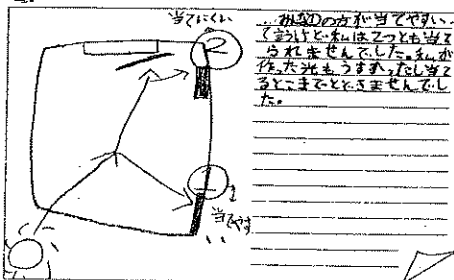 当てにくい
2
1
当てやす
い
…みなみの方が当てやすい
て言うけど私は2つとも当て
られませんでした。私が
作った光もうすかったし当て
るとこまでとどきませんでし
た。